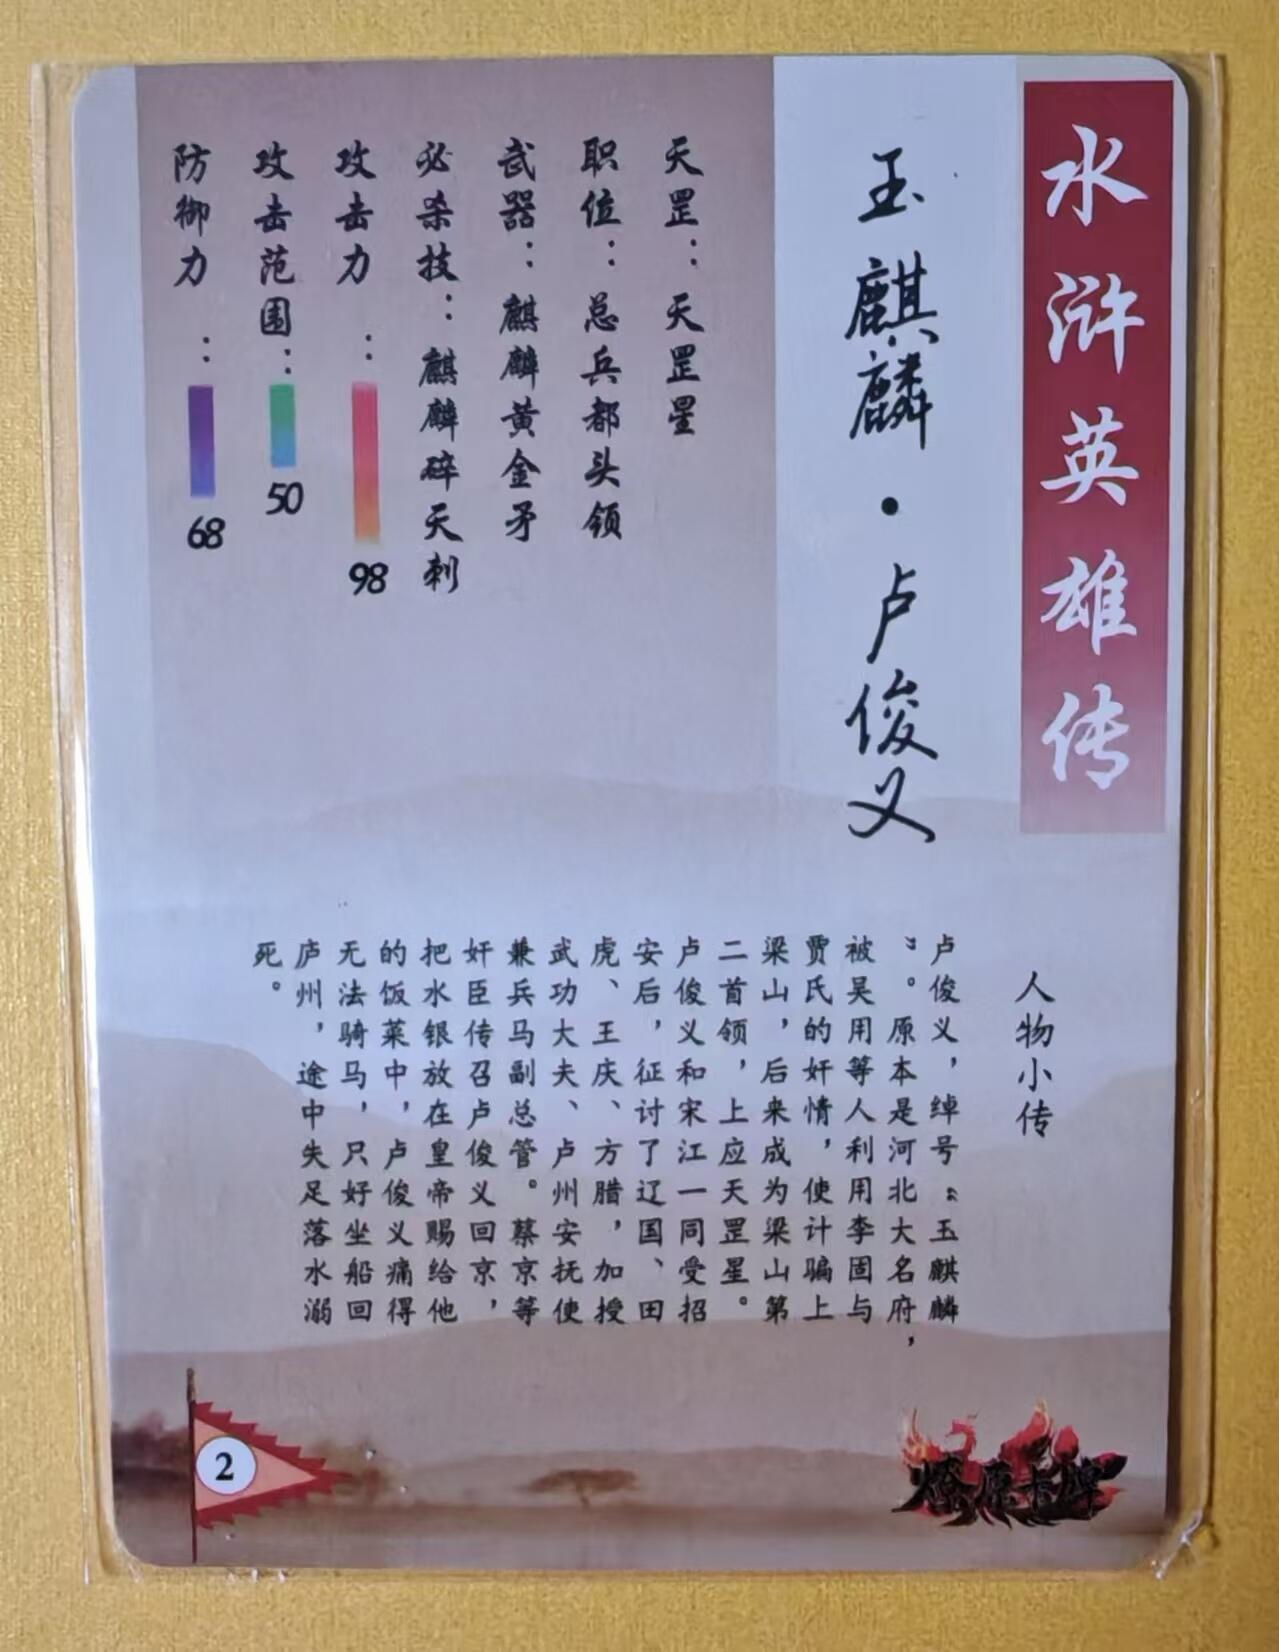 水浒英雄传
玉麒麟·卢俊义
天罡：天罡星
职位：总兵都头领
武器：麒麟黄金矛
必杀技：麒麟碎天刺
攻击力：98
攻击范围：50
防御力：68
人物小传
卢俊义，绰号“玉麒麟
”。原本是河北大名府，
被吴用等人利用李固与
贾氏的奸情，使计骗上
梁山，后来成为梁山第
二首领，上应天罡星。
卢俊义和宋江一同受招
安后，征讨了辽国、田
虎、王庆、方腊，加授
武功大夫、卢州安抚使
兼兵马副总管。蔡京等
奸臣传召卢俊义回京，
把水银放在皇帝赐给他
的饭菜中，卢俊义痛得
无法骑马，只好坐船回
庐州，途中失足落水溺
死。
2
燎原卡牌